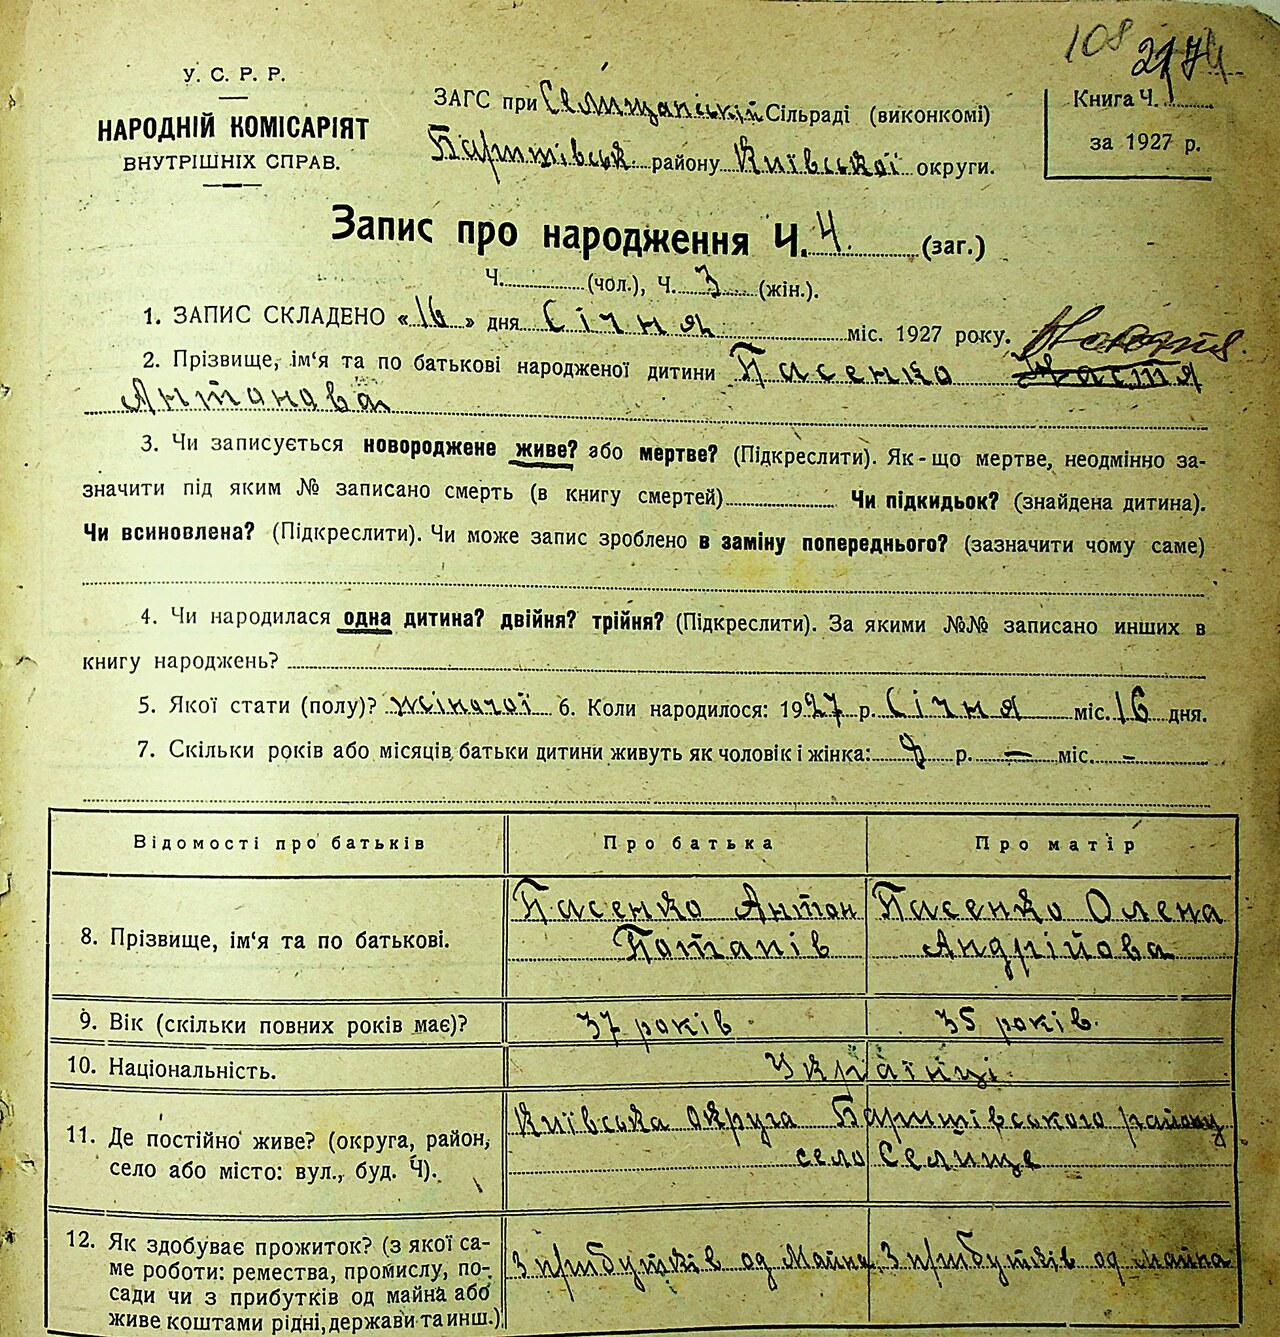 108
У. С. Р. Р.
НАРОДНІЙ КОМІСАРІЯТ
ВНУТРІШНІХ СПРАВ.
ЗАГС при Селищанській Сільраді (виконкомі)
Баришівськ. району Київської округи.
Книга Ч.
за 1927 р.
Запис про народження Ч. 4. (заг.)
Ч. (чол.), Ч. 3 (жін.).
1. ЗАПИС СКЛАДЕНО «16» дня Січня міс. 1927 року.
2. Прізвище, ім‘я та по батькові народженої дитини Пасенко Настя
Антонова
3. Чи записується новороджене живе? або мертве? (Підкреслити). Як-що мертве, неодмінно за-
значити під яким № записано смерть (в книгу смертей) Чи підкидьок? (знайдена дитина).
Чи всиновлена? (Підкреслити). Чи може запис зроблено в заміну попереднього? (зазначити чому саме)
4. Чи народилася одна дитина? двійня? трійня? (Підкреслити). За якими №№ записано инших в
книгу народжень?
5. Якої стати (полу)? жіночої 6. Коли народилося: 1927 р. Січня міс. 16 дня.
7. Скільки років або місяців батьки дитини живуть як чоловік і жінка: р. — міс. -
Відомості про батьків Про батька Про матір
8. Прізвище, ім'я та по батькові. Пасенко Антон Потапів Пасенко Олена Андрійова
9. Вік (скільки повних років має)? 37 років 35 років.
10. Національність. Українці
11. Де постійно живе? (округа, район, Київська округа Баришівського району
село або місто: вул., буд. Ч). село Селище
12. Як здобуває прожиток? (з якої са-
ме роботи: ремества, промислу, по- З прибутків од майна З прибутків од майна
сади чи з прибутків од майна або
живе коштами рідні, держави та инш.)